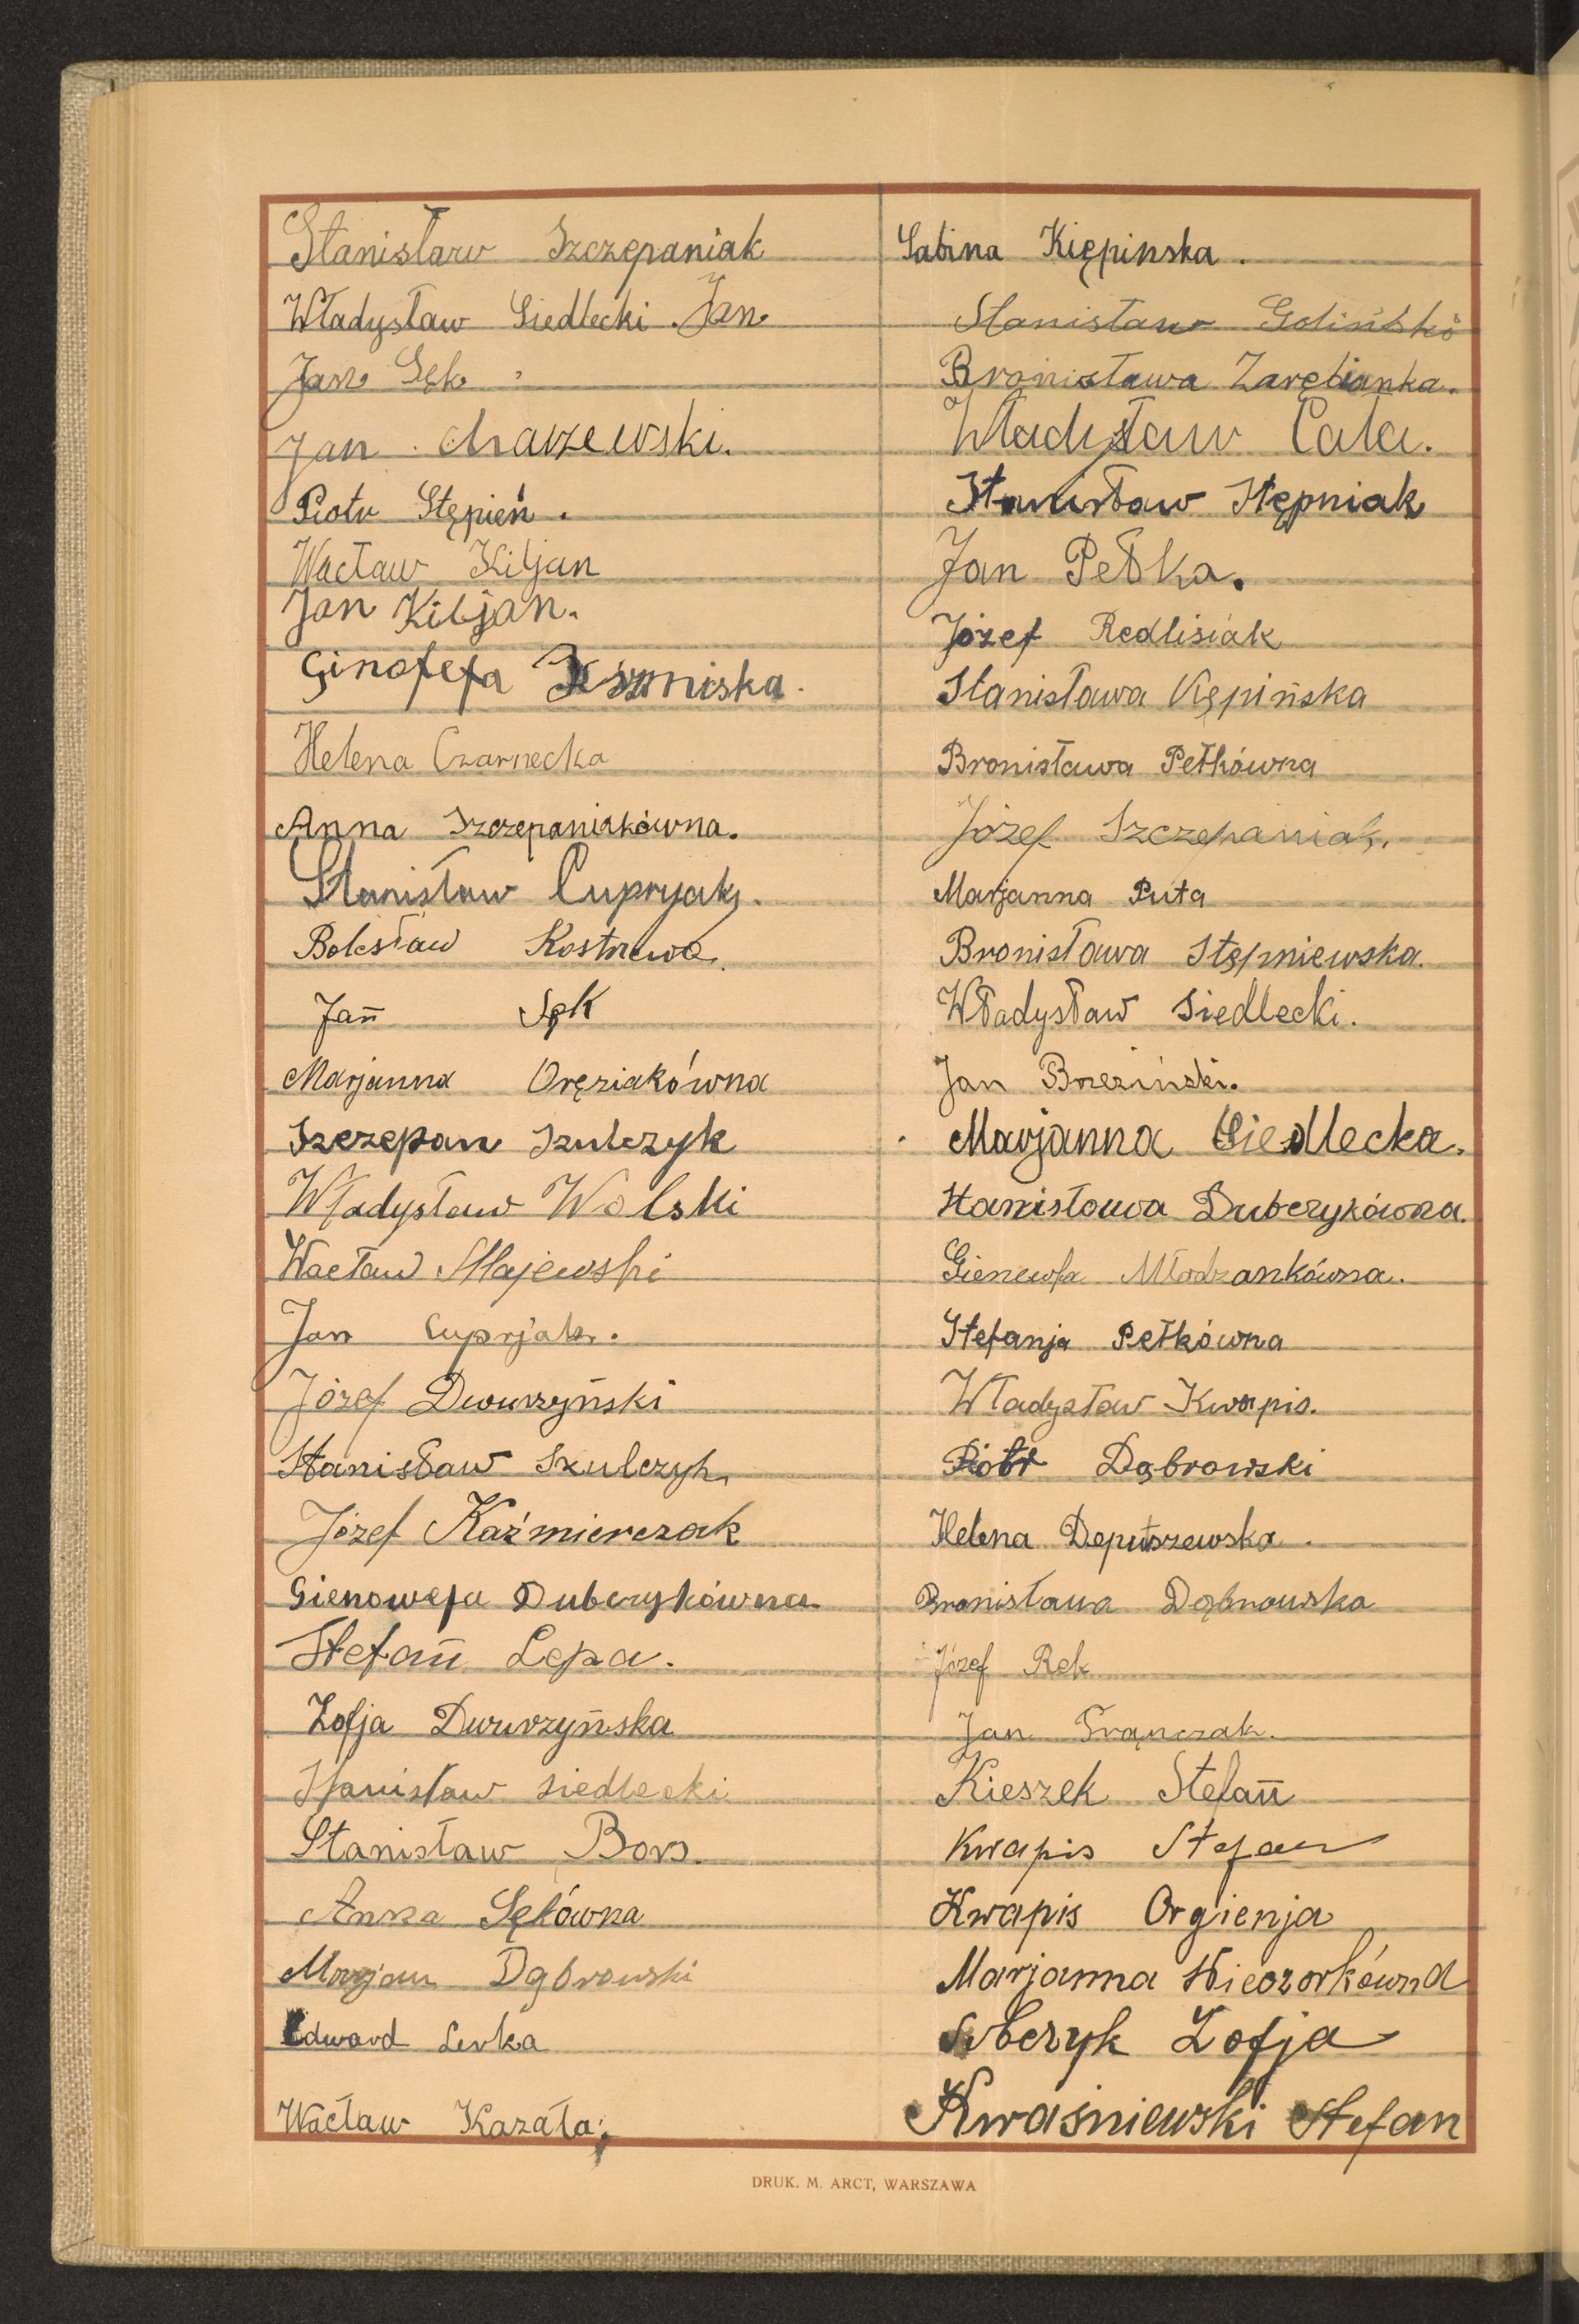 Stanisław Szczepaniak
Władysław Siedlecki Jan
Jan Sęk
Jan Charzewski.
Piotr Stępień.
Wacław Kiljan
Jan Kiljan.
Ginofefa
Helena Czarnecka
Anna Szczepaniakówna.
Stanisław Cupryjak.
Bolesław Kostrzewa.
Jan̄ Sęk
Marjanna Oręziakówna
Szczepan Szulczyk
Władysław Wolski
Wacław Majewski
Jan Cuprjak.
Józef Dwurzyński
Stanisław Szulczyk
Józef Kaźmierczak
Gienowefa Dubczykówna
Stefan̄ Lepa.
Zofja Dwurzyńska
Stanisław Siedlecki
Stanisław Bors.
Anna Sękówna
Marjan Dąbrowski
Edward Serka
Wacław Kazała.
Sabina Kiępinska.
Stanisław Goliński
Bronisława Zarębianka.
Władysław Cała.
Stanisław Stępniak
Jan Pełka.
Józef Redlisiak
Stanisława Kępińska
Bronisława Pełkówna
Józef Szczepaniak.
Marjanna Puta
Bronisława Stępniewska.
Władysław Siedlecki.
Jan Brzeziński.
Marjanna Siedlecka.
Stanisława Dubczykówna.
Gienewfa Młodzankówna.
Stefanja Pełkówna
Władysław Kwapis.
Piotr Dąbrowski
Helena Depuszewska.
Bronisława Dąbrowska
Józef Rek
Jan Franczak.
Kieszek Stefan̄
Kwapis Stefan
Kwapis Orgienja
Marjanna Wieczorkówna
Zofja
Kwaśniewski Stefan
DRUK. M. ARCT, WARSZAWA